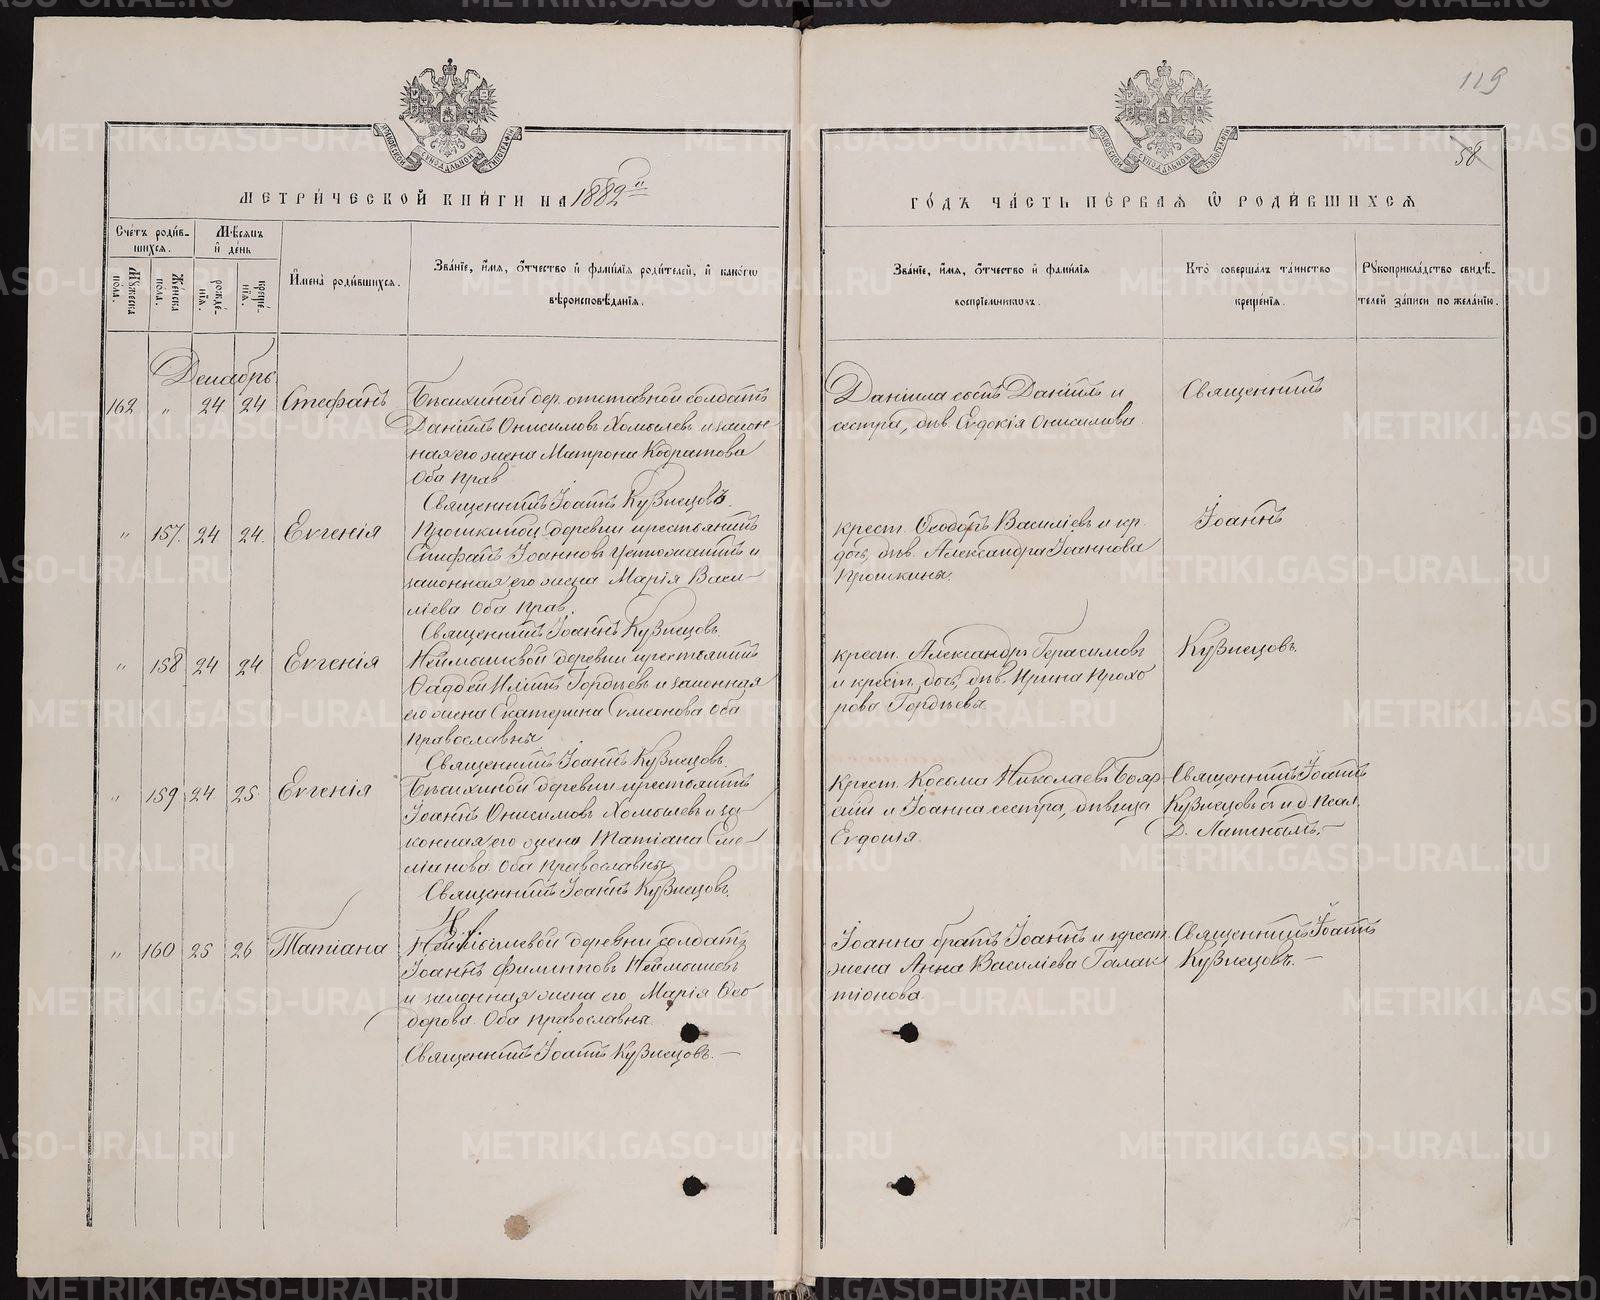 119
58
МЕТРИ́ЧЕСКОЙ КНИ́ГИ НА 1882й
ГО́ДЪ ЧА́СТЬ ПЕ́РВАЯ Ѿ РОДИ́ВШИХСЯ
Сче́тъ роди́в-
шихся.
Мѣ́сяцъ
и҆ де́нь
Мꙋ́жеска
по́ла.
Же́нска
по́ла.
рожде́-
нїя.
креще́-
нїя.
И҆мена̀ роди́вшихся.
Зва́нїе, и҆́мя, ѻ҆́тчество и҆ фами́лїя роди́телей, и҆ како́гѡ
вѣроисповѣ́данїя.
Зва́нїе, и҆́мя, ѻ҆́тчество и҆ фами́лїя
воспрїе́мникѡвъ.
Кто̀ соверша́лъ та́инство
креще́нїя.
Рꙋкоприкла́дство свидѣ́-
телей за́писи по жела́нїю.
Декабрь
162 " 24 24 Стефанъ
дер. отставной солдатъ
Данiилъ Онисимовъ Хомылевъ и закон-
ная его жена Матрона Кодратова
Оба прав
Священникъ Іоаннъ Кузнецовъ.
Данiила сынъ Данiилъ и
сестра, дѣв. Евдокія Онисимова.
Священникъ
" 157. 24 24. Евгенія
деревни крестьянинъ
Стефанъ Іоанновъ и
законная его жена Марія Васи-
ліева Оба прав.
Священникъ Іоаннъ Кузнецовъ.
крест. Ѳеодоръ Василіевъ и кр.
дочь, дѣв. Александра Іоаннова
Прошкины.
Іоаннъ
" 158 24 24 Евгенія
Неймышевой деревни крестьянинъ
Ѳаддей Иліинъ Гордѣевъ и законная
его жена Екатерина Симеонова Оба
православны
Священникъ Іоаннъ Кузнецовъ.
крест. Александръ Герасимовъ
и крест. дочь, дѣв. Ирина Прохо
рова Гордѣевы
Кузнецовъ.
" 159 24 25 Евгенія
деревни крестьянинъ
Іоаннъ Онисимовъ Хомылевъ и за-
конная его жена Татіана Еме-
ліанова Оба православны
Священникъ Іоаннъ Кузнецовъ.
Крест. Косьма Николаевъ Бояр
и Іоанна сестра, дѣвица
Евдокія.
Священникъ Іоаннъ
Кузнецовъ съ и. д. псал.
Д. –
" 160 25 26 Татіана
Неймышевой деревни солдатъ
Іоаннъ Филипповъ Неймышевъ
и законная жена его Марія Ѳео
дорова. Оба православны.
Священникъ Іоаннъ Кузнецовъ. –
Іоанна братъ Іоаннъ и крест.
жена Анна Василіева Галак
тіонова
Священникъ Іоаннъ
Кузнецовъ. –
METRIKI.GASO-URAL.RU